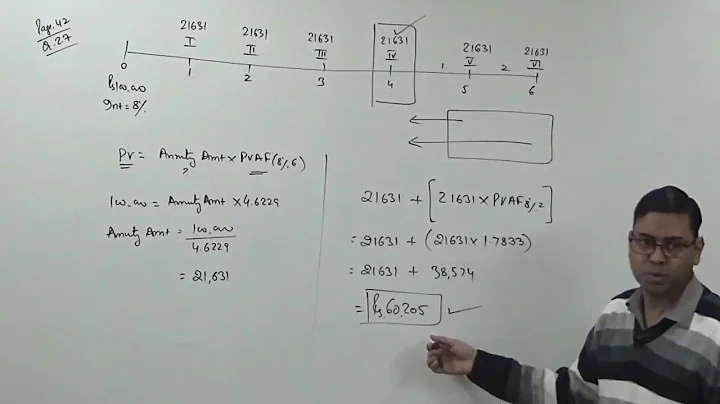 Page.42
Q.27
21631 21631 21631 21631 21631 21631
I II III IV V VI
1 2
0 1 2 3 4 5 6
Rs100,000
Int = 8%
PV = Annuity Amt x PVAF(8%,6)
?
100,000 = Annuity Amt x 4.6229
Annuity Amt = 100,000
4.6229
= 21,631
21631 + [21631 x PVAF 8%,2]
= 21631 + (21631 x 1.7833)
= 21631 + 38,574
= Rs.60,205